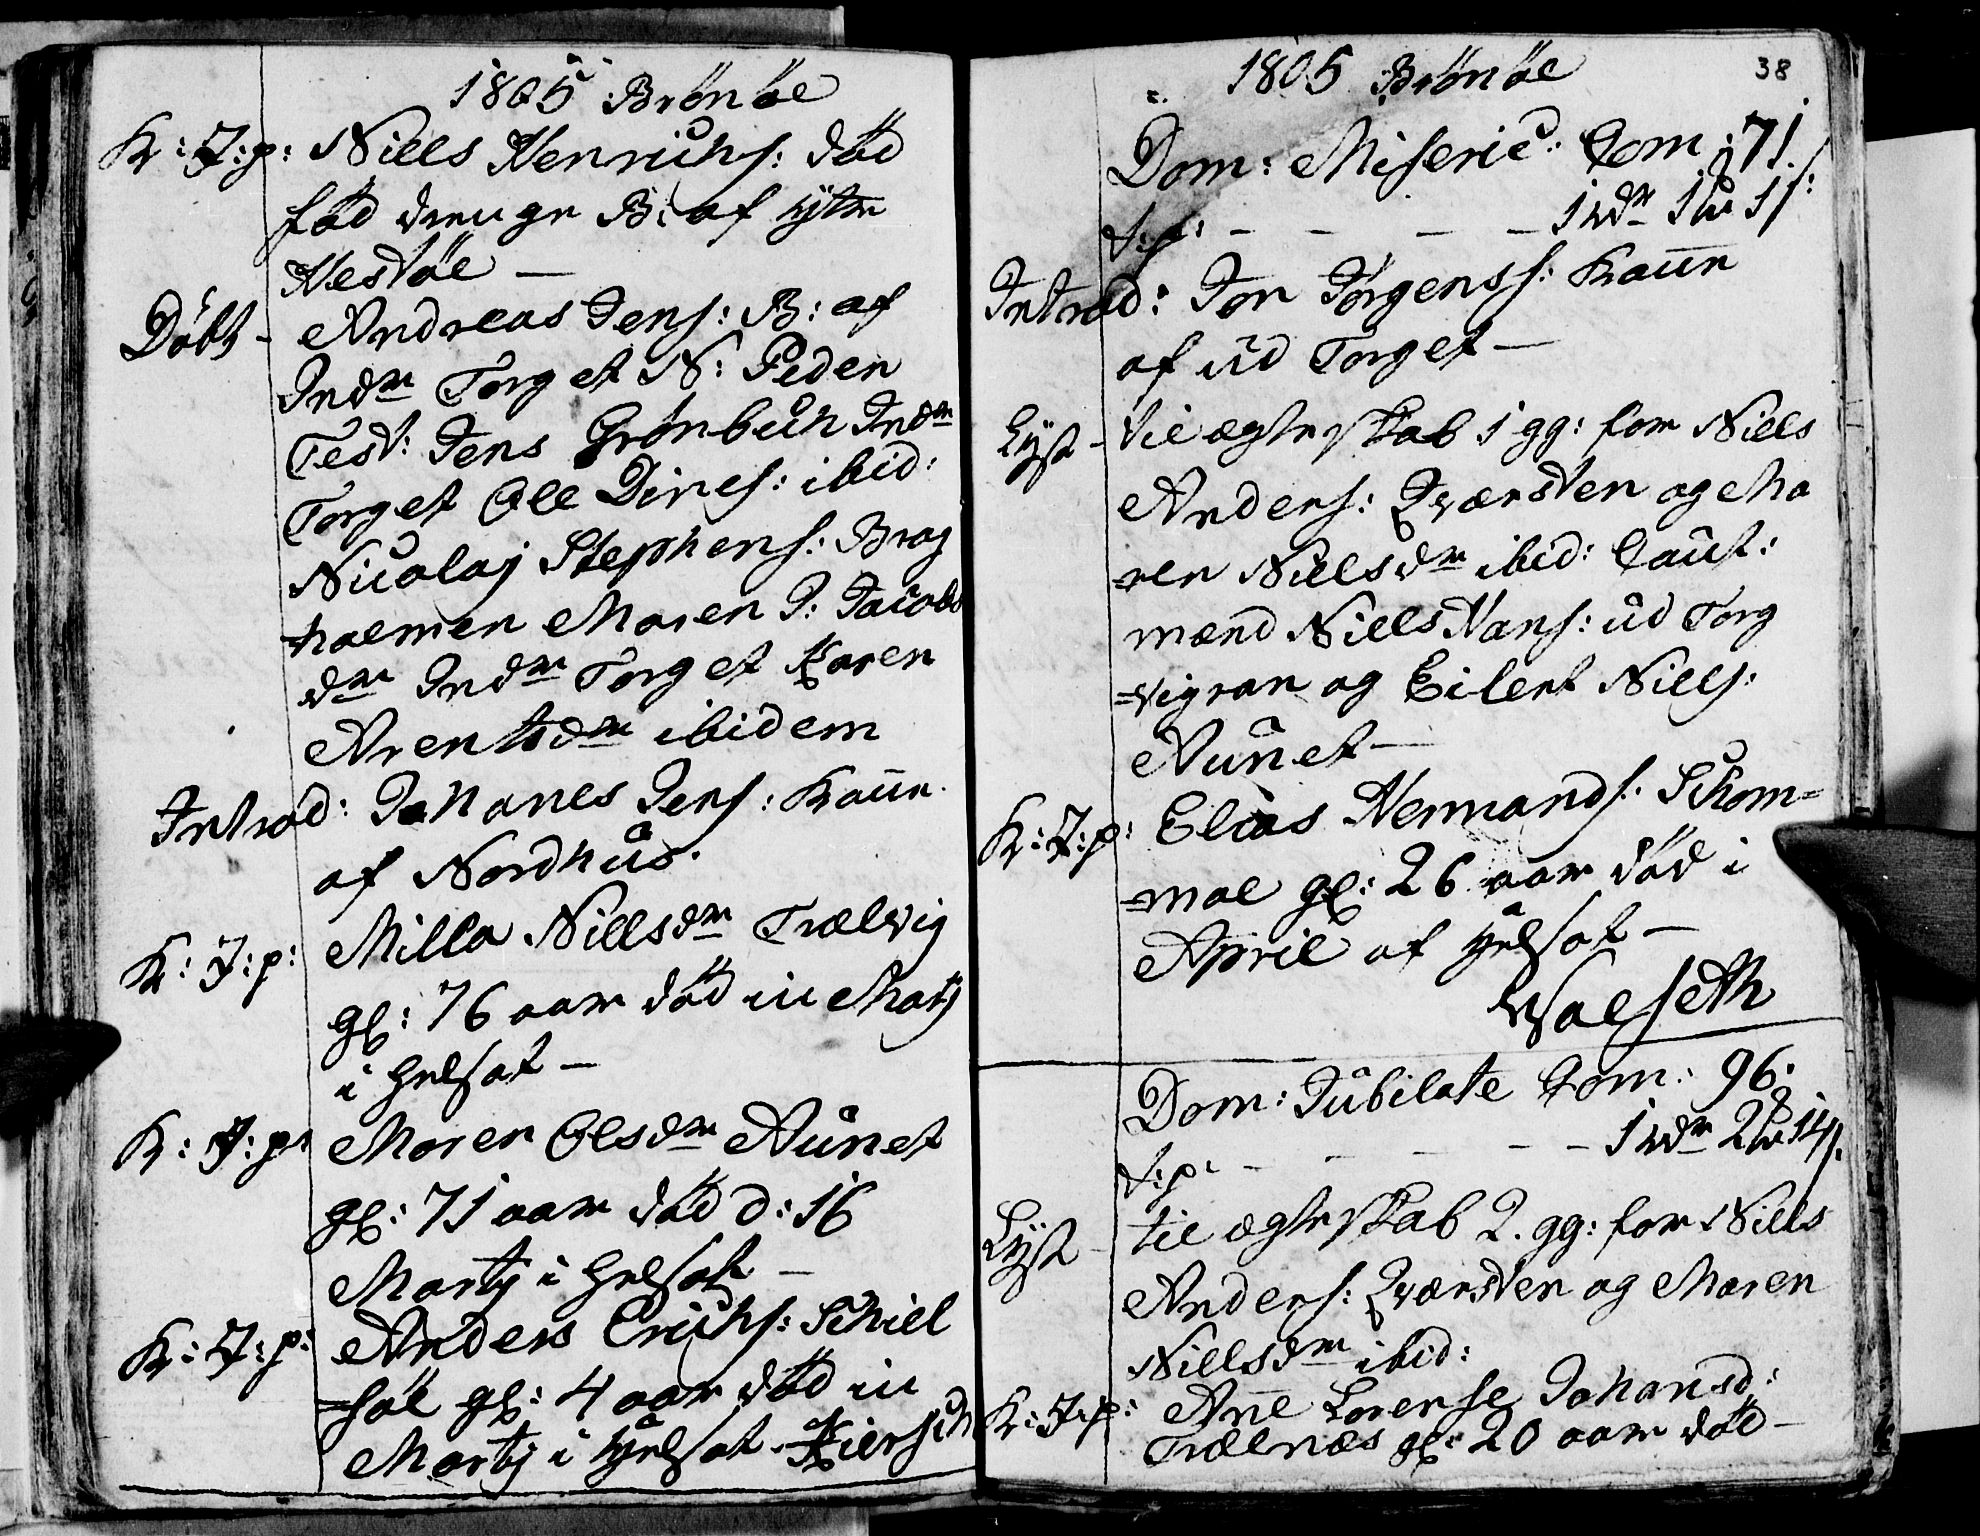 1805 Brönöe
K: J: p: Niels Henrichs: død
fød drenge B: af ytre
Hestöe —
Döbt - Andreas Jens: B: af
Indre Torget N: Peder
Test: Jens Grönbech Indre
Torget Ole Dines: ibid:
Nicolaj Stephens: Brag
=holmen Maren J: Jacobs
dr Indre Torget Karen
Arentsdr ibidem
Introd: Johanes Jens: Kone
af Nordhus.
K: J: p: Milla Nielsdr Trælvig
gl: 76 aar död in Martj
i Helsot —
K: J: p: Maren Olsdr Aunet
gl: 71 aar död d: 16
Martj i Helsot —
K: J: p: Anders Erichs: Schiel
=söe gl: 4 aar död in
Martj i Helsot.
1805 Brönöe
38
Dom: Miseric: Com: 71.
1 1 1 s:
Introd: Jon Jörgens: Kone
af ud Torget —
Lyst - til ægteskab 1 gg: for Niels
Anders: Qværsten og Ma
=ren Nielsdr ibid: Caut:
mænd Niels Hans: ud Torg
og Eilert Niels:
Aunet —
K: J: p: Elias Hermands: Schom=
=moe gl: 26 aar död i
April af Helsot —
Walseth
Dom: Jubilate Com: 96.
1 2 14 s.
Lyst - til ægteskab 2. gg: for Niels
Anders: Qværsten og Maren
Nielsdr ibid:
K: J: p: Ane Lorense Johansd:
Trælnæs gl: 20 aar död —